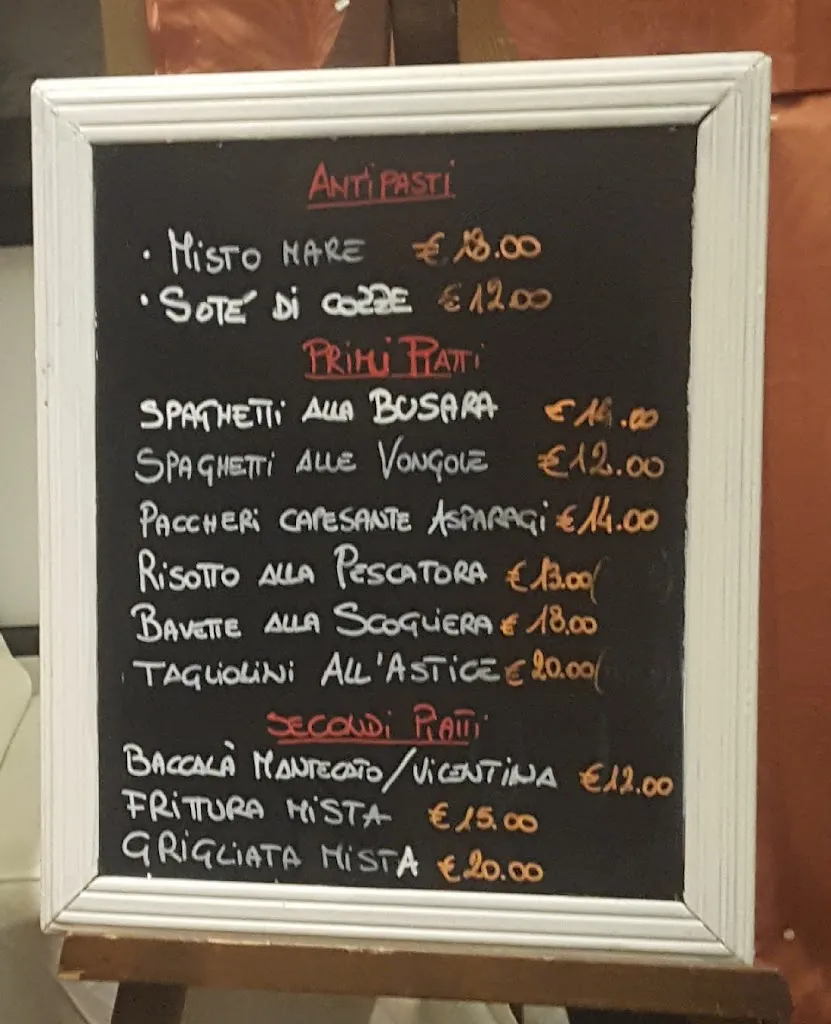 ANTIPASTI
· MISTO MARE € 18.00
· SOTÉ DI COZZE € 12.00
PRIMI PIATTI
SPAGHETTI ALLA BUSARA € 14.00
SPAGHETTI ALLE VONGOLE € 12.00
PACCHERI CAPESANTE ASPARAGI € 14.00
RISOTTO ALLA PESCATORA € 13.00(
BAVETTE ALLA SCOGLIERA € 18.00
TAGLIOLINI ALL'ASTICE € 20.00(
SECONDI PIATTI
BACCALÀ MANTECATO/VICENTINA € 12.00
FRITTURA MISTA € 15.00
GRIGLIATA MISTA € 20.00